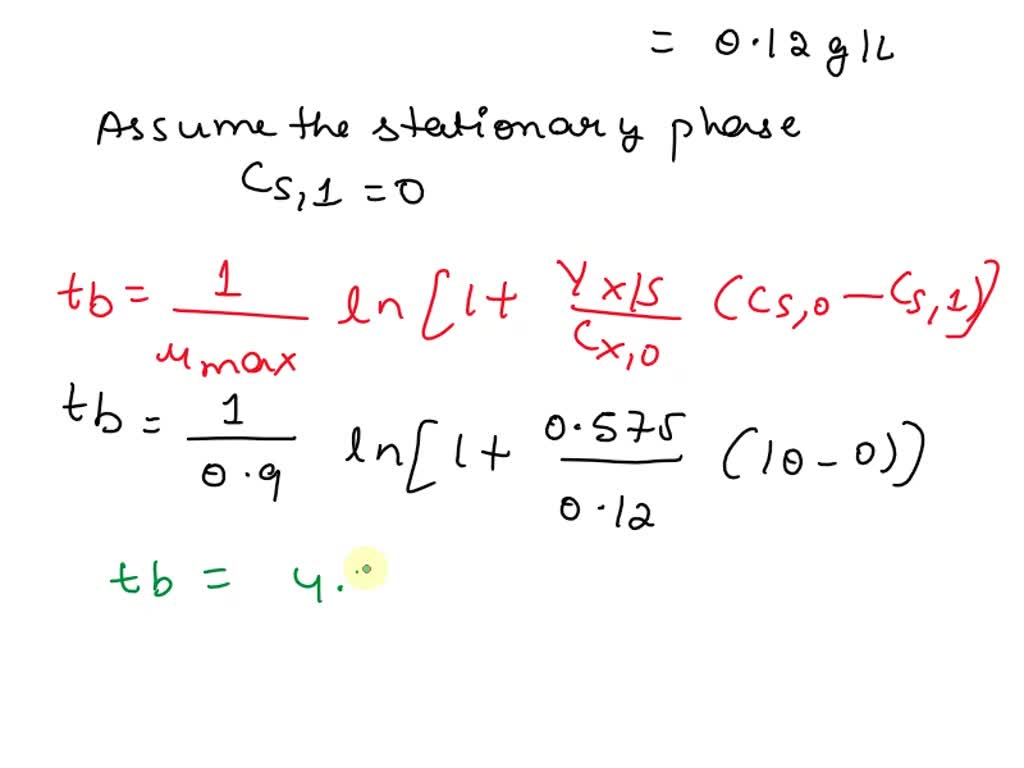 = 0.12 g/L
Assume the stationary phase
Cs,1 = 0
tb = 1/μmax ln[1+ Yx/s/Cx,0 (Cs,0 - Cs,1)]
tb = 1/0.9 ln[1+ 0.575/0.12 (10-0)]
tb = 4.